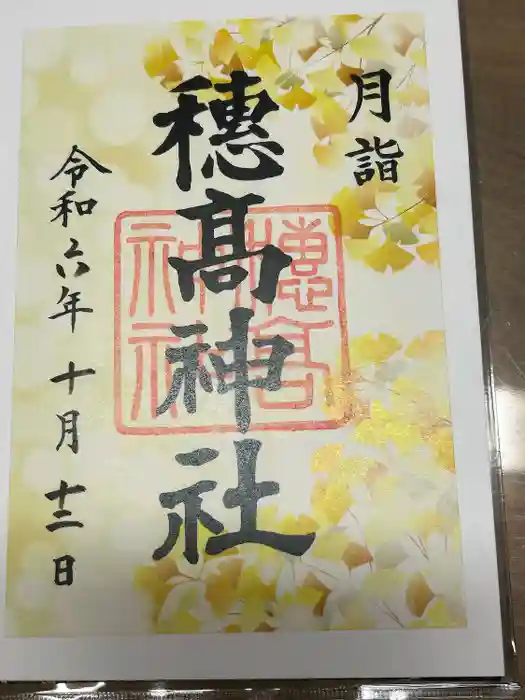 月詣
穗髙神社
穗高神社
令和六年十月十二日